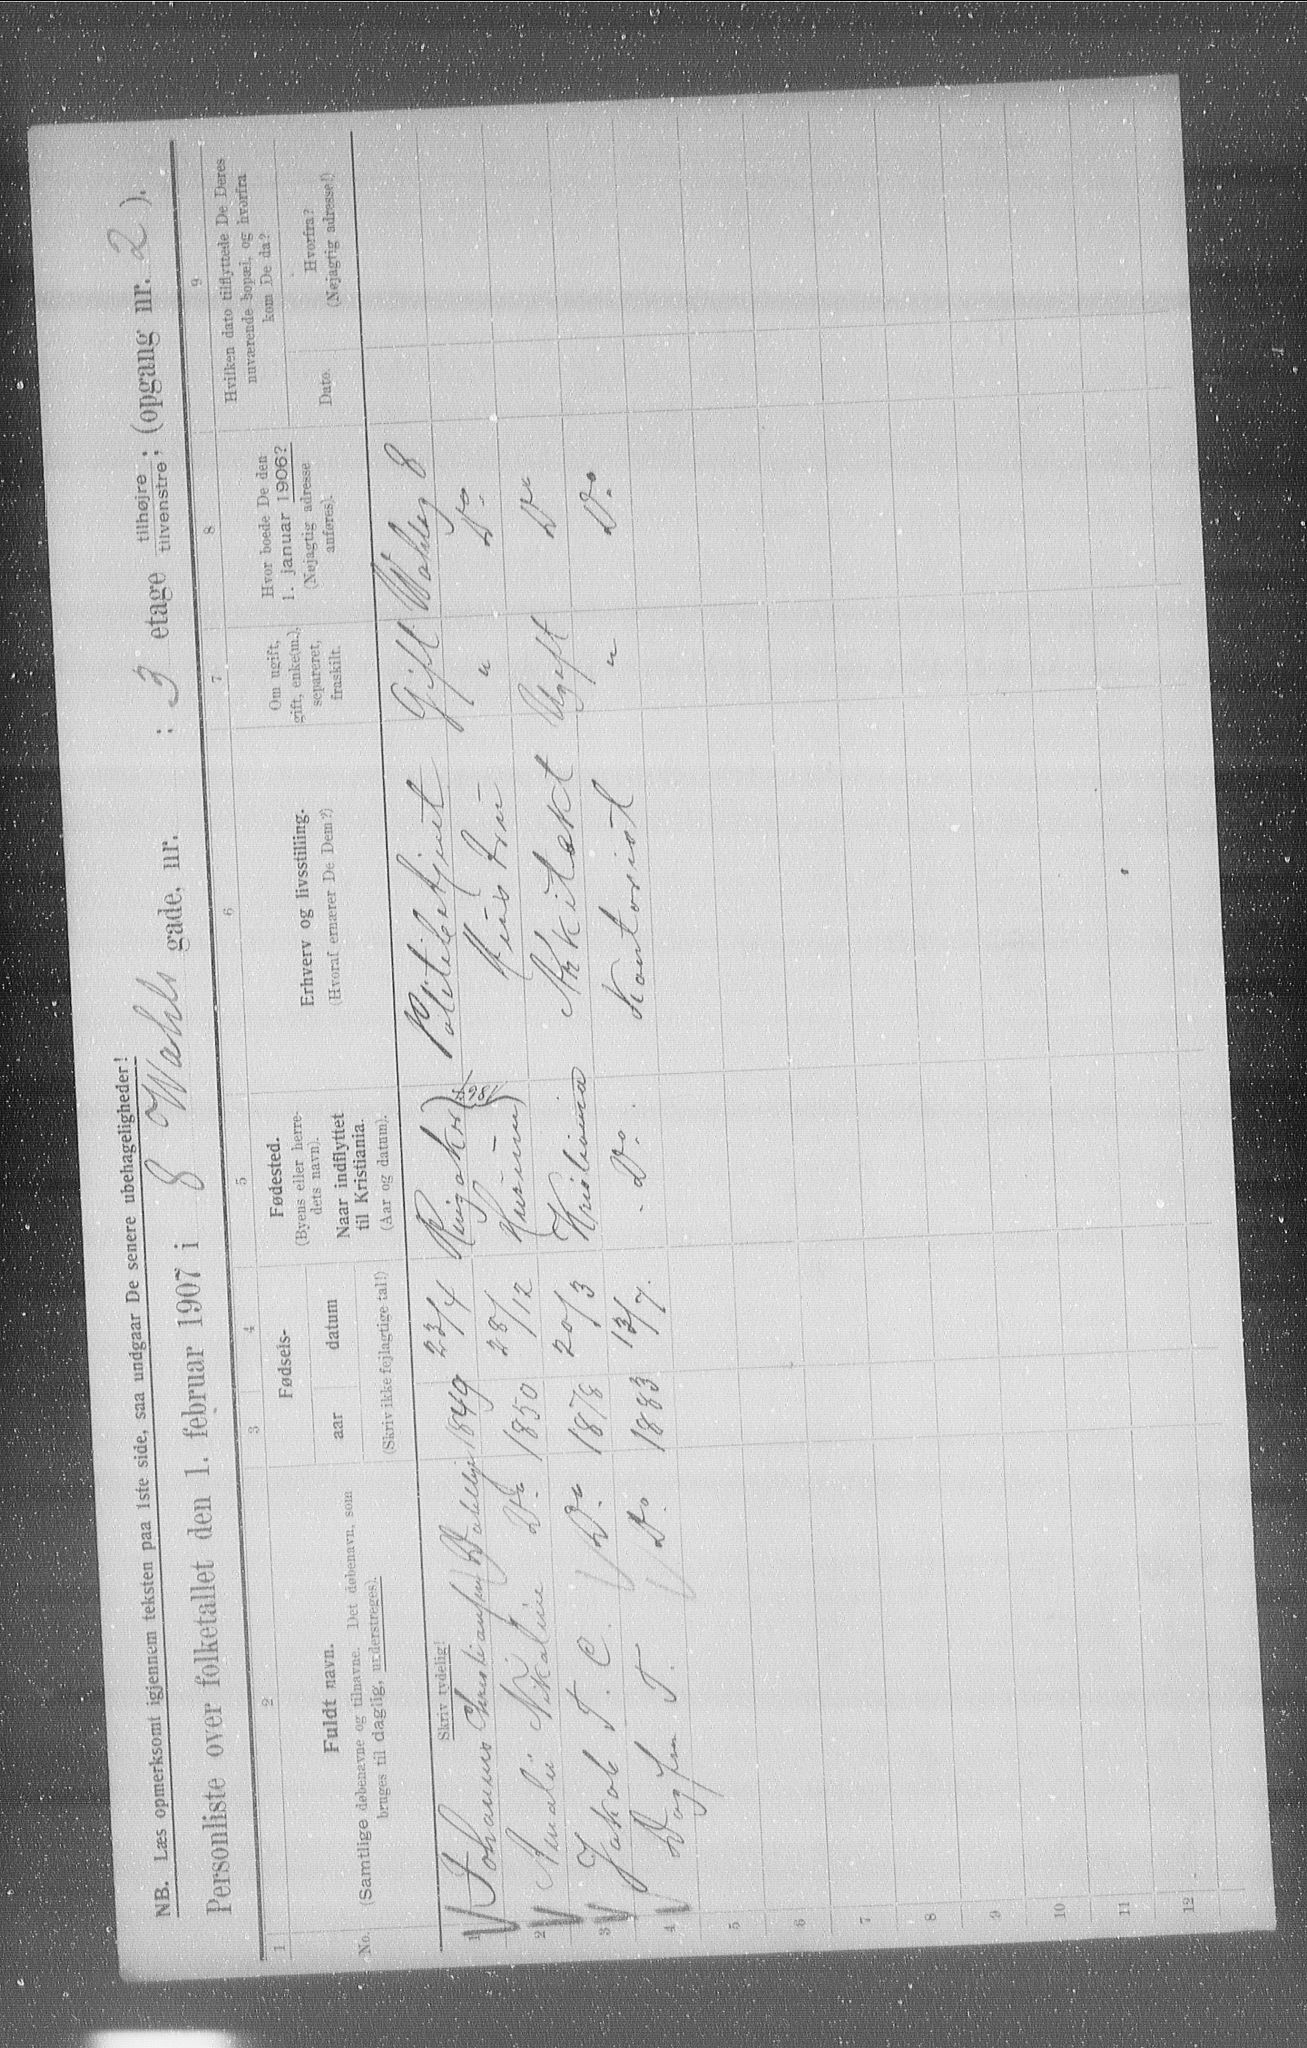 NB. Læs opmerksomt igjennem teksten paa 1ste side, saa undgaar De senere ubehageligheder!
Personliste over folketallet den 1. februar 1907 i 8 Wahls gade, nr. : 3 etage tilhøjre ; tilvenstre ; (opgang nr. 2 ).
1 2 3 4 5 6 7 8 9
No.
Fuldt navn.
(Samtlige døbenavne og tilnavne. Det døbenavn, som
bruges til daglig, understreges).
Fødsels-
aar datum
(Skriv ikke fejlagtige tal!)
Fødested.
(Byens eller herre-
dets navn).
Naar indflyttet
til Kristiania.
(Aar og datum).
Erhverv og livsstilling.
(Hvoraf ernærer De Dem?)
Om ugift,
gift, enke(m.),
separeret,
fraskilt.
Hvor boede De den
1. januar 1906?
(Nøjagtig adresse
anføres).
Hvilken dato tilflyttede De Deres
nuværende bopæl, og hvorfra
kom De da?
Dato.
Hvorfra?
(Nøjagtig adresse!)
Skriv tydelig!
1 Johannes 1849 23/4 Ringsaker Politibetjent Gift 8
2 Amalie Nikoline Do 1850 28/12 Hustru " Do
3 Jakob T. C. Do 1878 20/3 Kristiania Arkitekt Ugift Do
4 Dagfin T. Do 1883 13/7. Do. Kontorist " Do
5
6
7
8
9
10
11
12